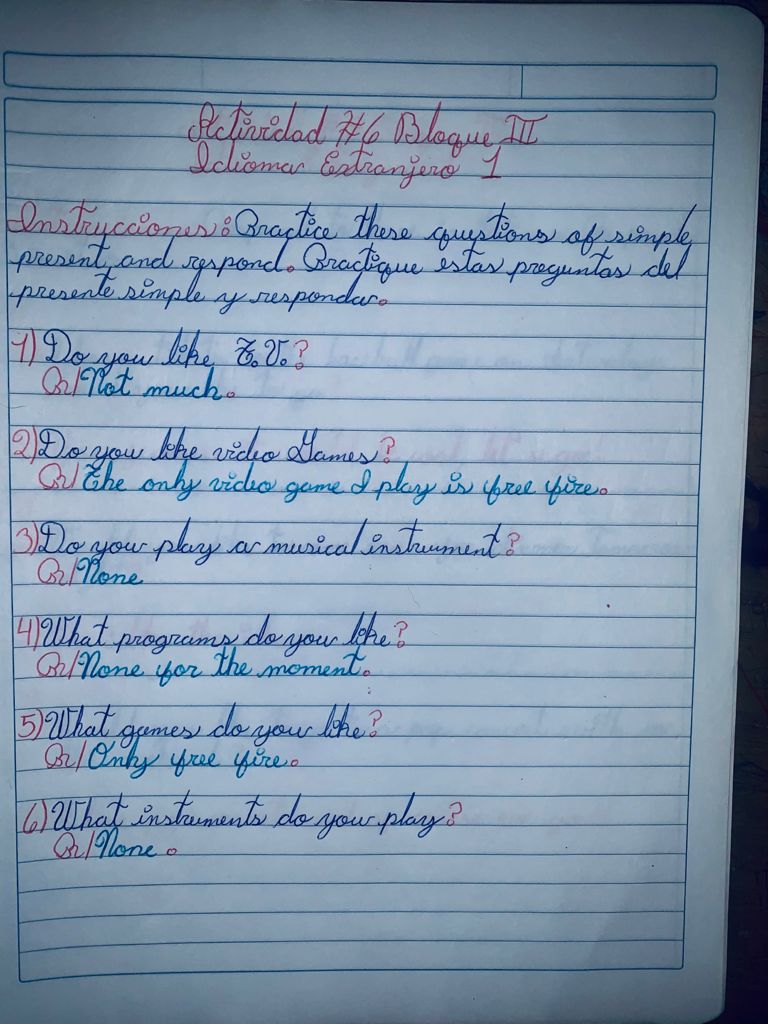 Actividad #6 Bloque III
Idioma Extranjero 1
Instrucciones: Practice these questions of simple
present, and respond. Practique estas preguntas del
presente simple y responda.
1) Do you like T.V.?
R/ Not much.
2) Do you like video Games?
R/ The only video game I play is free fire.
3) Do you play a musical instrument?
R/ None
4) What programs do you like?
R/ None for the moment.
5) What games do you like?
R/ Only free fire.
6) What instruments do you play?
R/ None.